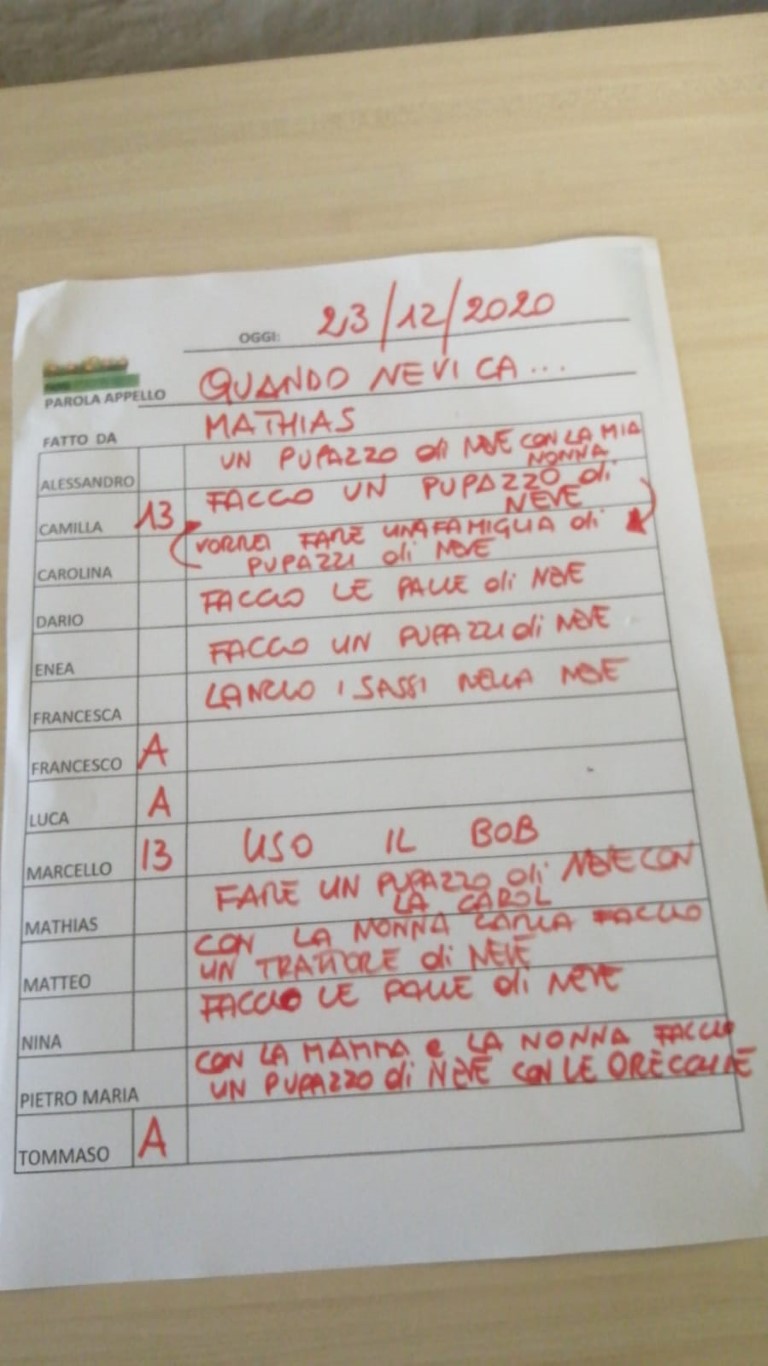 OGGI: 23/12/2020
PAROLA APPELLO QUANDO NEVICA...
FATTO DA MATHIAS
ALESSANDRO UN PUPAZZO di NEVE CON LA MIA
NONNA
CAMILLA 13 FACCIO UN PUPAZZO di
NEVE
CAROLINA VORREI FARE UNA FAMIGLIA di
PUPAZZI di NEVE
DARIO FACCIO LE PALLE di NEVE
ENEA FACCIO UN PUPAZZU di NEVE
FRANCESCA LANCIO I SASSI NELLA NEVE
FRANCESCO A
LUCA A
MARCELLO 13 USO IL BOB
MATHIAS FARE UN PUPAZZO di NEVE CON
LA CAROL
MATTEO CON LA NONNA CARLA FACCIO
UN TRATTORE di NEVE
NINA FACCIO LE PALLE di NEVE
PIETRO MARIA CON LA MAMMA e LA NONNA FACCIO
UN PUPAZZO di NEVE CON LE ORECCHIE
TOMMASO A